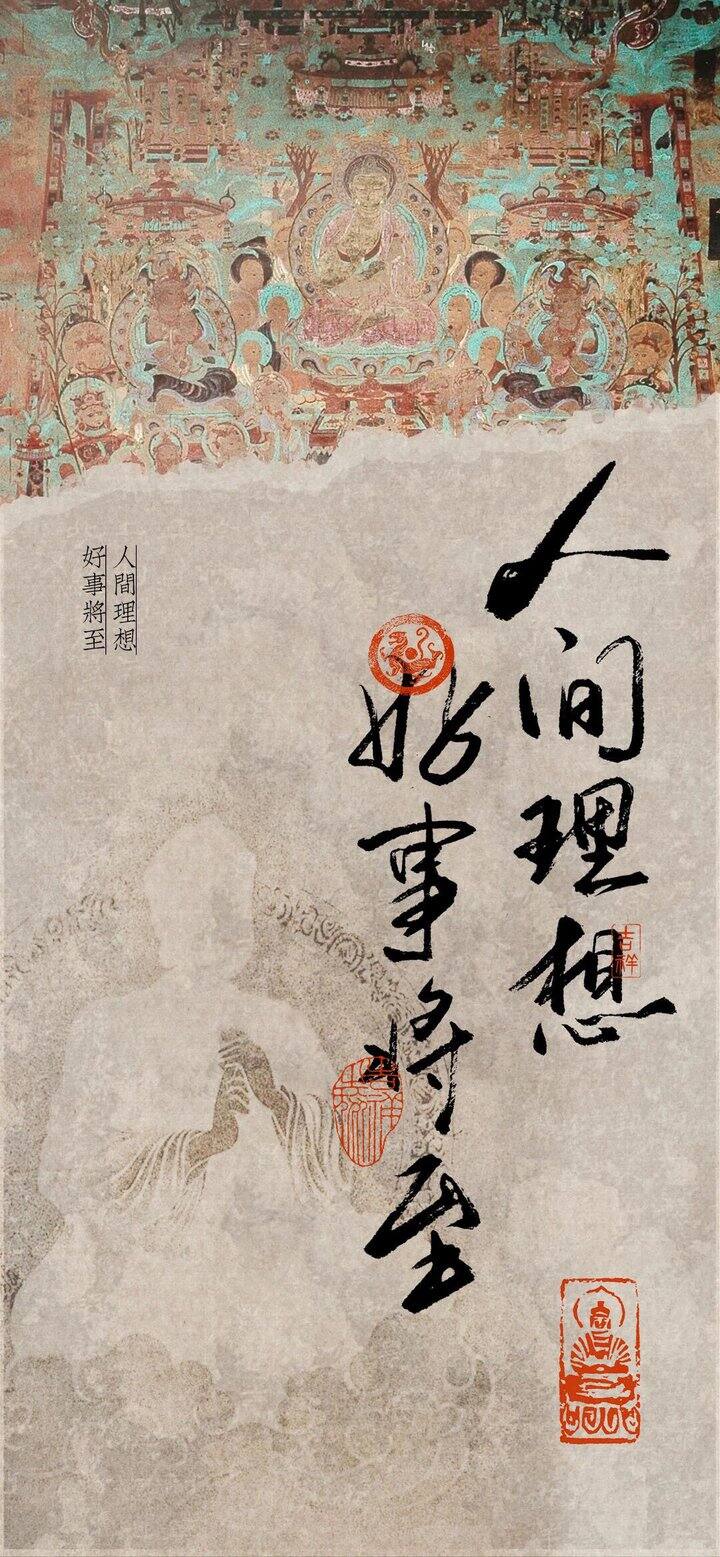 人间理想
好事将至
人間理想
好事將至
吉祥